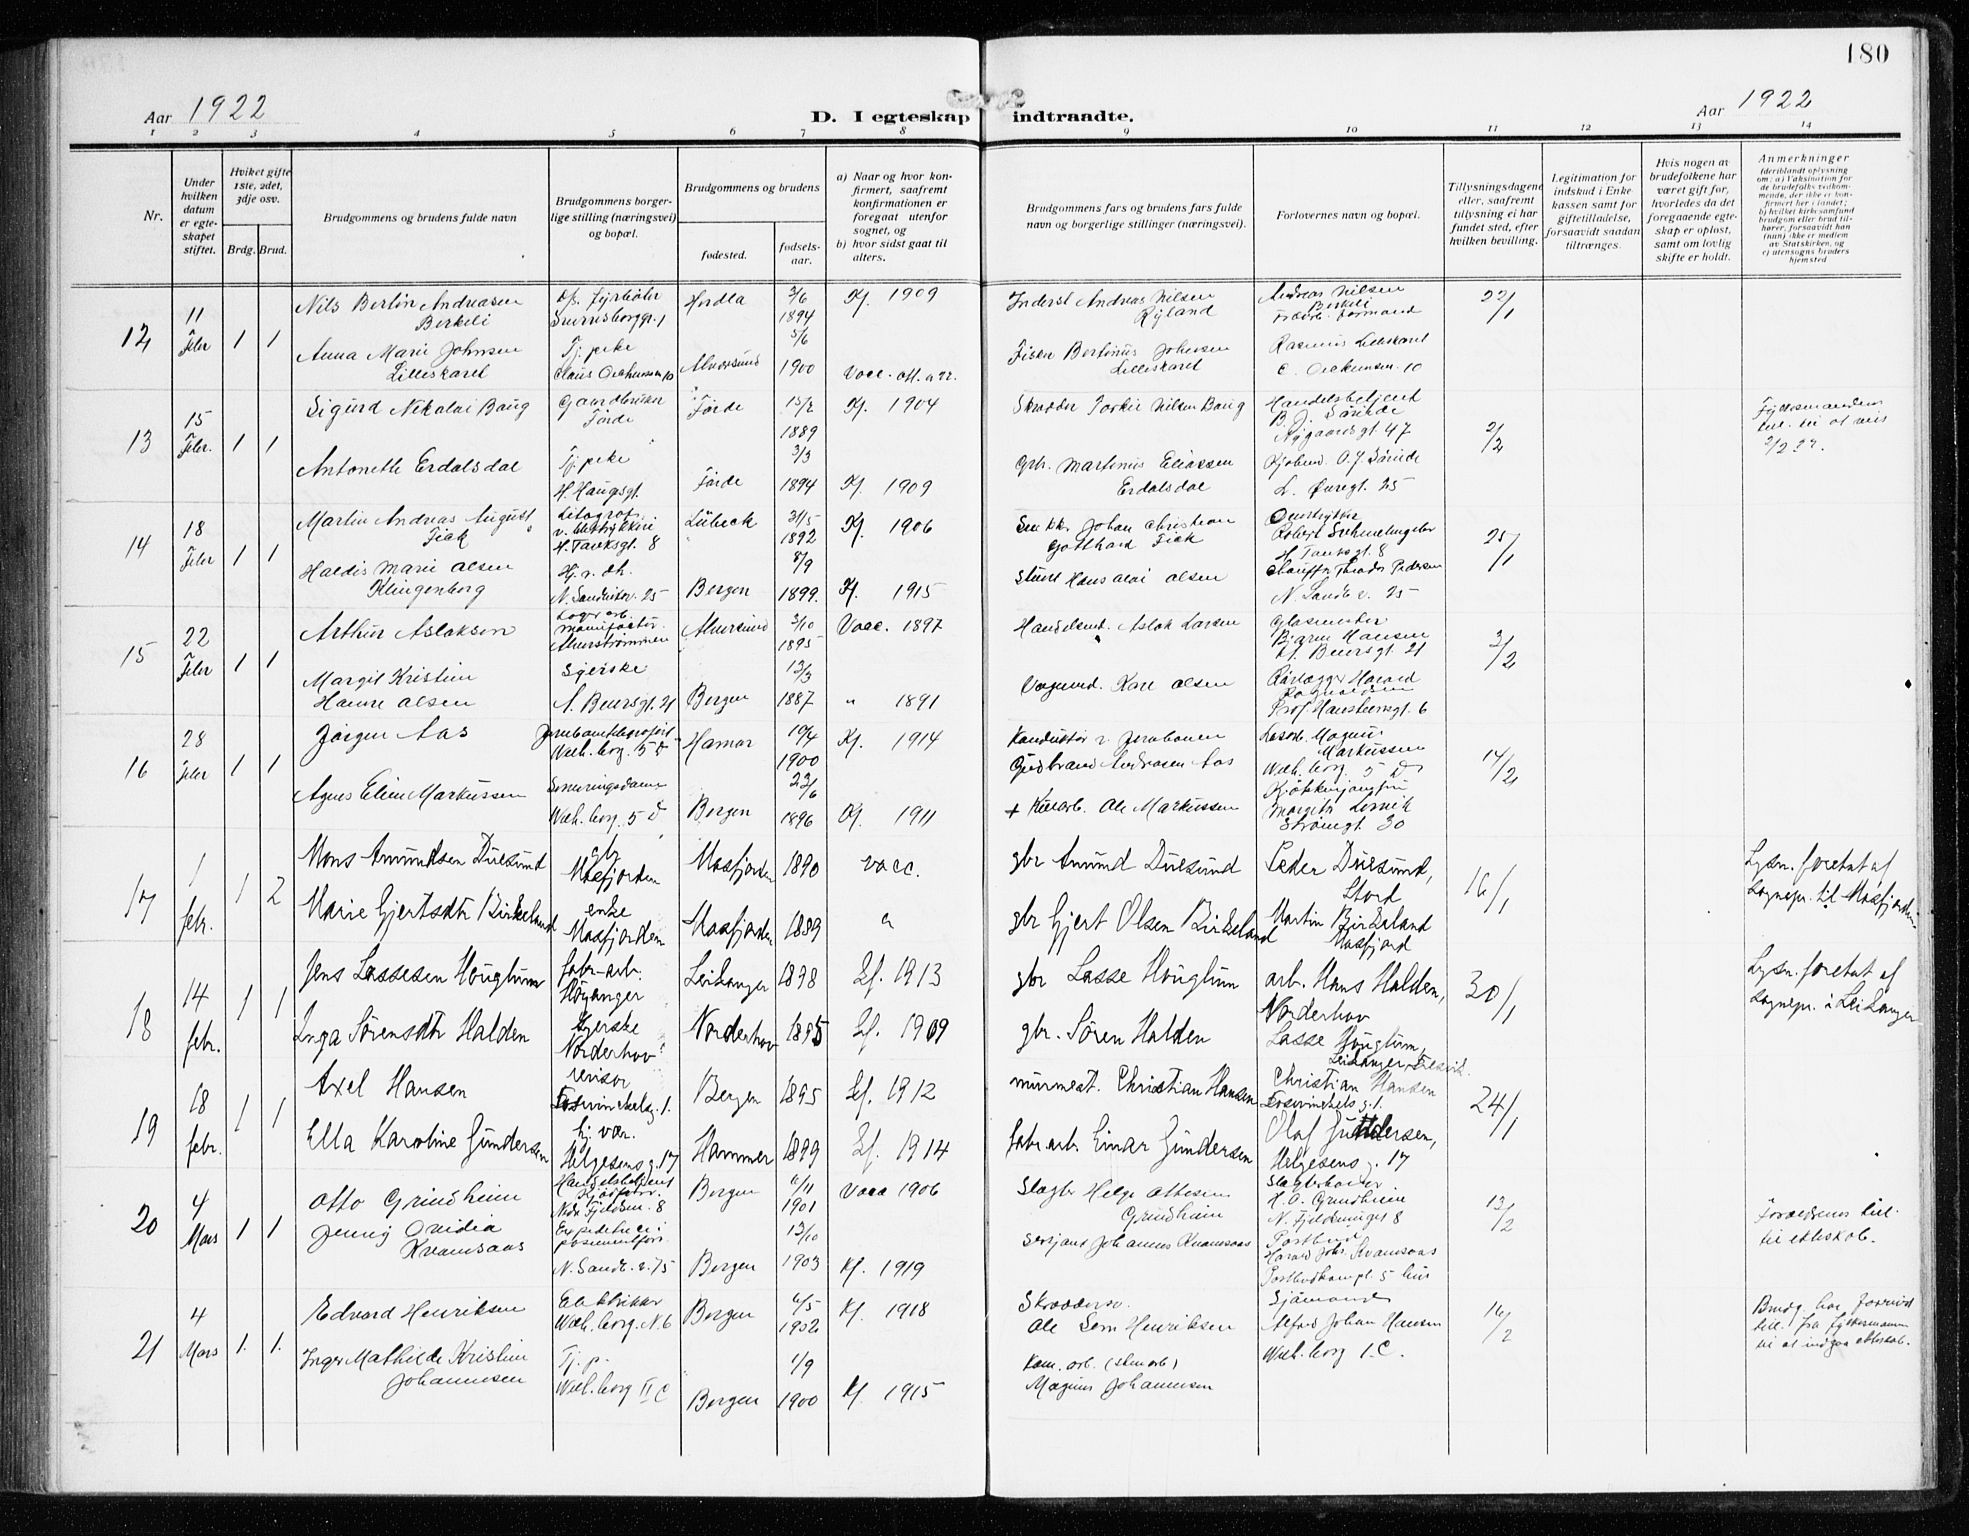 180
Aar 1922
D. I egteskap indtraadte.
Aar 1922
1 2 3 4 5 6 7 8 9 10 11 12 13 14
Nr.
Under hvilken datum er egteskapet stiftet.
Hvilket gifte 1ste, 2det, 3dje osv.
Brdg. Brud.
Brudgommens og brudens fulde navn
Brudgommens borgerlige stilling (næringsvei) og bopæl.
Brudgommens og brudens
fødested.
fødselsaar.
a) Naar og hvor konfirmert, saafremt konfirmationen er foregaat utenfor sognet, og
b) hvor sidst gaat til alters.
Brudgommens fars og brudens fars fulde navn og borgerlige stillinger (næringsvei).
Forlovernes navn og bopæl.
Tillysningsdagene eller, saafremt tillysning ei har fundet sted, efter hvilken bevilling.
Legitimation for indskud i Enkekassen samt for giftetilladelse, forsaavidt saadan tiltrænges.
Hvis nogen av brudefolkene har været gift før, hvorledes da det foregaaende egteskap er opløst, samt om lovlig skifte er holdt.
Anmerkninger
12 11 Febr 1 1
Nils Bertin Andreasen Birkeli
Hordla 3/6 1894 Kf. 1909
Inderst Andreas Nilsen Ryland
Andreas Nilsen Birkeli
22/1
Anna Marie Johnsen Lilleskaret
Tj. pike
Alversund 5/6 1900
Fisker Bertinus Johnsen Lilleskaret
Rasmus Lilleskaret
13 15 Febr. 1 1
Sigurd Nikolai Baug
Gaardbruker Förde
Förde 15/2 1889 Kf. 1904
Skrædder Torkil Nilsen Baug
Handelsbetjent B. J. Sörinde
Nygaardsgt 47
2/2
Antonette Erdalsdal
Tj. pike
H. Haugsgt.
Förde 3/3 1894 Kf. 1909
Grb. Martinus Eliassen Erdalsdal
L. Øvregt. 25
14 18 Febr 1 1
Martin Andreas August Fick
Litograf
H. Tanksgt. 8
Lübeck 31/5 1892 Kf. 1906
Johan Christian Gotthard Fick
H. Tanksgt. 8
25/1
Haldis Marie Olsen Klingenberg
Hj. v. dh.
N. Sandviksv. 25
Bergen 8/9 1899. Kf. 1915
Hans Olai Olsen
Chauffør Theodor Pedersen
N. Sandv. v. 25
15 22 Febr 1 1
Arthur Aslaksen
Lagerarb.
Alverströmmen
Alversund 3/10 1895 Vacc. 1897
Handelsmd. Aslak Larsen
Glasmester Bjarne Hansen
3/2
Margit Kristine Hanne Olsen
Syerske
N. Beyersgt. 21
Bergen 13/3 1887 " 1891
Vognmd. Karl Olsen
Rörlægger Harald Ragnvaldsen
Prof. Hansteensgt. 6
16 28 Febr 1 1
Jörgen Aas
Wilh. borg. 5 D
Hamar 19/4 1900 Kf. 1914
Konduktör v. Jernbanen
Gudbrand Andreasen Aas
Magnus Markussen
Wilh. borg. 5 D
14/2
Agnes Eline Markussen
Serveringsdame
Wilh. borg. 5 D
Bergen 23/6 1896 Kf. 1911
+ Kulearb. Ole Markussen
Strömgt. 30
17 1 febr. 1 2
Mons Amundsen Duesund
gbr Masfjorden
Masfjorden 1890 vacc.
gbr Amund Duesund
Peder Duesund, Stord
16/1
Lysn. foretat af Sognepr. til Masfjorden.
Marie Gjertsdtr Birkeland
enke Masfjorden
Masfjorden 1889 "
gbr Gjert Olsen Birkeland
Martin Birkeland Masfjord
18 14 febr. 1 1
Jens Lassesen Houglum
fabr-arb. Höyanger
Leikanger 1898 Kf. 1913
gbr Lasse Houglum
arb. Hans Halden, Norderhov
30/1
Lysn. foretat af Sognepr. i Leikanger
Inga Sörensdtr Halden
syerske Norderhov
Norderhov 1895 Kf. 1909
gbr. Sören Halden
Lasse Houglum, Leikanger
19 18 febr. 1 1
Axel Hansen
revisor
Bergen 1895 Kf. 1912
murmest. Christian Hansen
Christian Hansen
24/1
Ella Karoline Gundersen
hj. vær.
Helgesens g. 17
Hammer 1899 Kf. 1914
fabr. arb. Einar Gundersen
Olaf Gundersen,
Helgesens g. 17
20 4 Mars 1 1
Otto Grindheim
Handelsbetjent
Bergen 6/11 1901 Vacc 1906
Slagter Helge Ottesen Grindheim
H. O. Grindheim
13/2
Forældrenes till. til ekteskab.
Jenny Ovidia Kvamsaas
N. Sandv. v. 75
Bergen 13/10 1903 Kf. 1919
Serjant Johannes Kvamsaas
Postbud Harald Johs. Kvamsaas
21 4 Mars 1. 1.
Edvard Henriksen
Elektriker
Wilh. borg. N. 6
Bergen 6/5 1902 Kf. 1918
Skræddersv. Ole Sem Henriksen
Sjömand Alfred Johan Hansen
Wilh. borg 1. C.
16/2
Brudg. har fornöd. till. fra fylkesmannen til at indgaa ekteskab.
Inger Mathilde Kristine Johannesen
Tj. p.
Wilh. borg II C
Bergen 1/9 1900 Kf. 1915
Kom. arb. (stenarb)
Magnus Johannesen